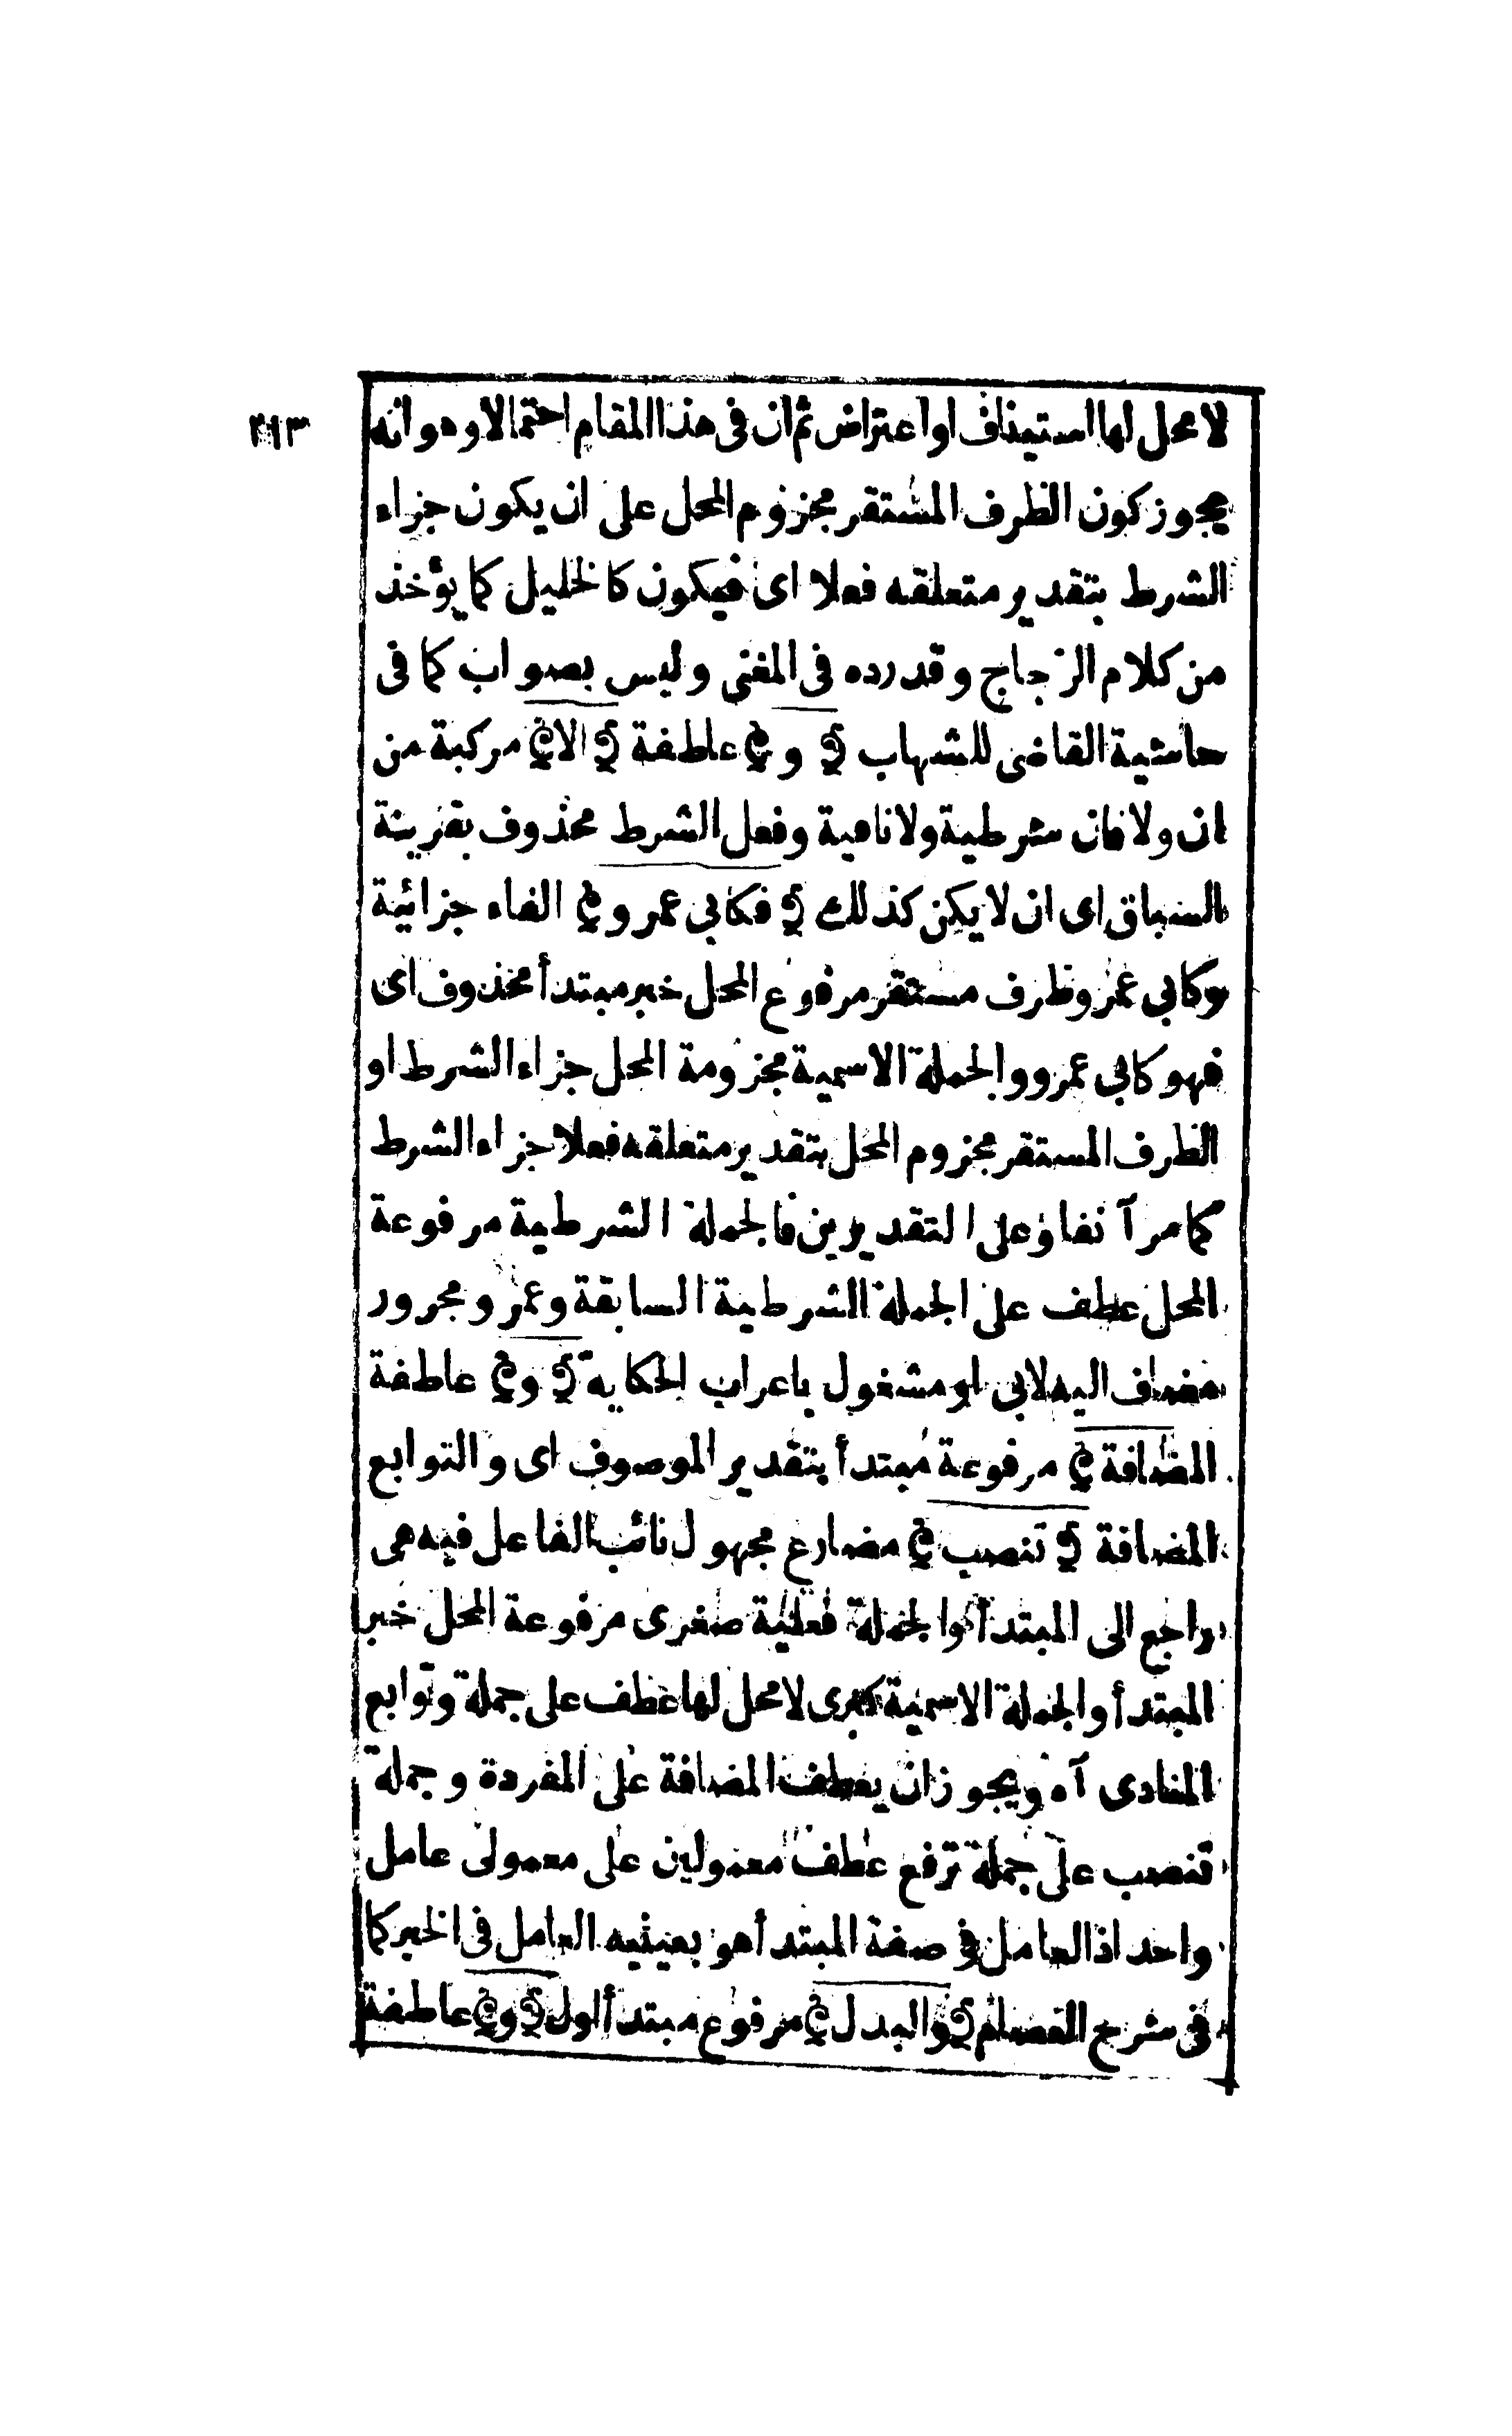 ٢١٣
لا محل لها استيناف او اعتراض ثم ان فى هذا المقام احتمالا وهو انه
يجوز كون الظرف المستقر مجزوم المحل على ان يكون جزاء
الشرط بتقدير متعلقه فعلا اى فيكون كالخليل كما يؤخذ
من كلام الزجاج وقد رده فى المغنى وليس بصواب كما فى
حاشية القاضى للشهاب ﴿ و ﴾ عاطفة ﴿ الا ﴾ مركبة من
ان ولا فان شرطية ولا نافية وفعل الشرط محذوف بقرينة
السباق اى ان لا يكن كذلك ﴿ فكابى عمرو ﴾ الفاء جزائية
وكابى عمرو ظرف مستقر مرفوع المحل خبر مبتدأ محذوف اى
فهو كابى عمرو والجملة الاسمية مجزومة المحل جزاء الشرط او
الظرف المستقر مجزوم المحل بتقدير متعلقه فعلا جزاء الشرط
كما مر آنفا وعلى التقديرين فالجملة الشرطية مرفوعة
المحل عطف على الجملة الشرطية السابقة وعمرو مجرور
مضاف اليه لابى او مشغول باعراب الحكاية ﴿ و ﴾ عاطفة
المضافة ﴾ مرفوعة مبتدأ بتقدير الموصوف اى والتوابع
المضافة ﴿ تنصب ﴾ مضارع مجهول نائب الفاعل فيه هى
راجع الى المبتدأ والجملة فعلية صغرى مرفوعة المحل خبر
المبتدأ والجملة الاسمية كبرى لا محل لها عطف على جملة وتوابع
المنادى آه ويجوز ان يعطف المضافة على المفردة وجملة
تنصب على جملة ترفع عطف معمولين على معمولى عامل
واحد اذ العامل فى صفة المبتدأ هو بعينيه العامل فى الخبر كما
فى شرح العصام ﴿ والبدل ﴾ مرفوع مبتدأ اول ﴿ و ﴾ عاطفة